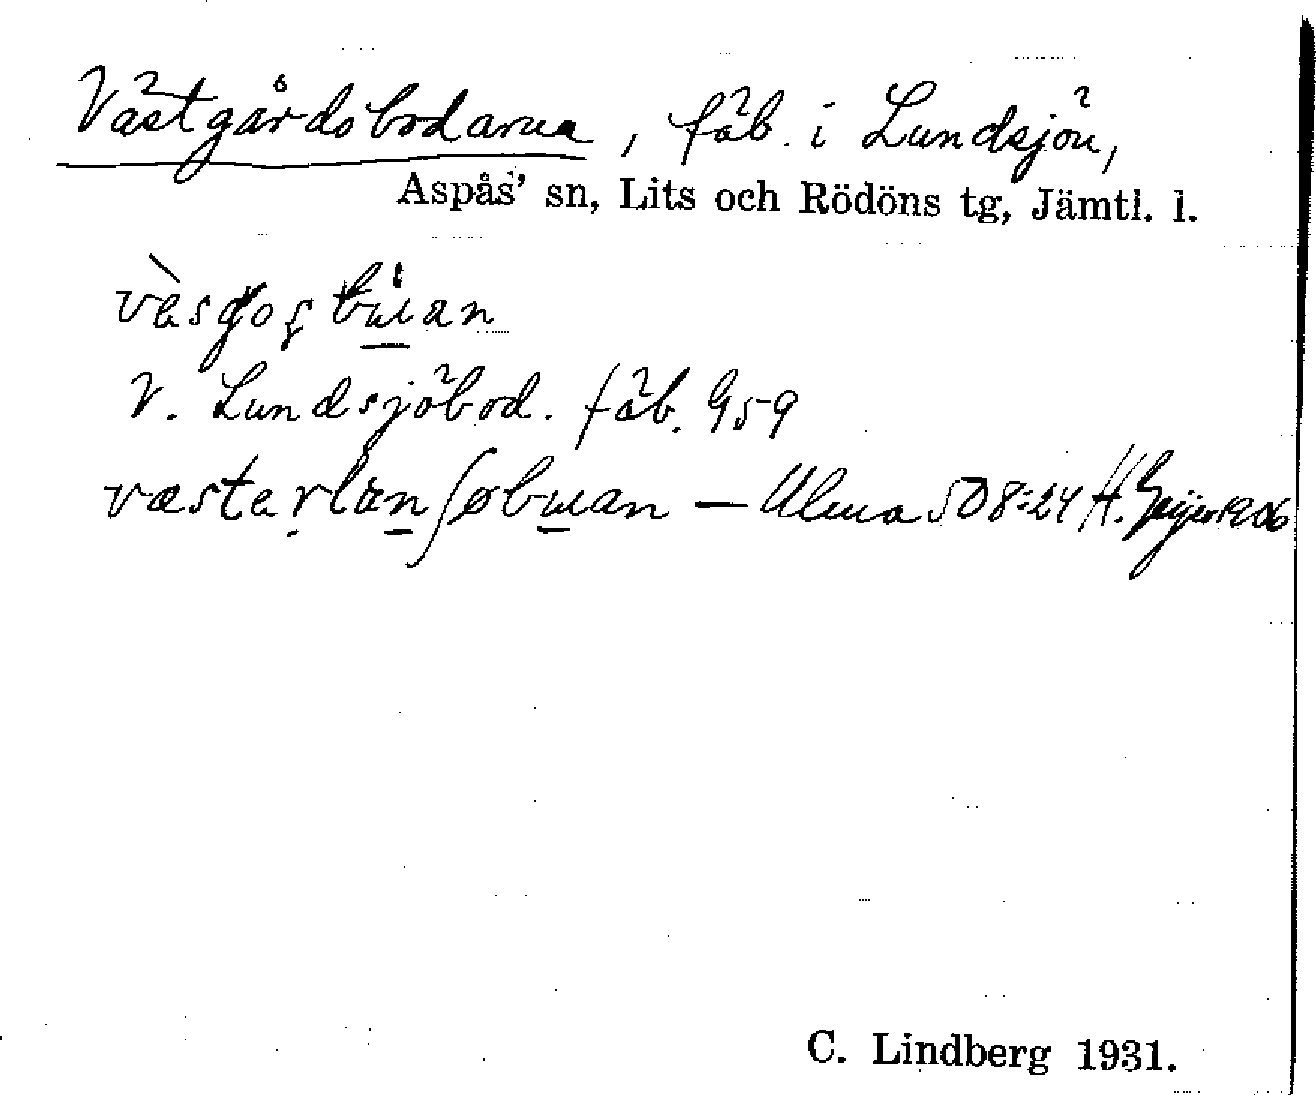 Västgårdsbodarna, fäb. i Lundsjön,
Aspås' sn, Lits och Rödöns tg, Jämtl. l.
V. Lundsjöbod. fäb. G59
væsterlanʃøbuan — Ulma 508:24 H. Geijer 1906
C. Lindberg 1931.